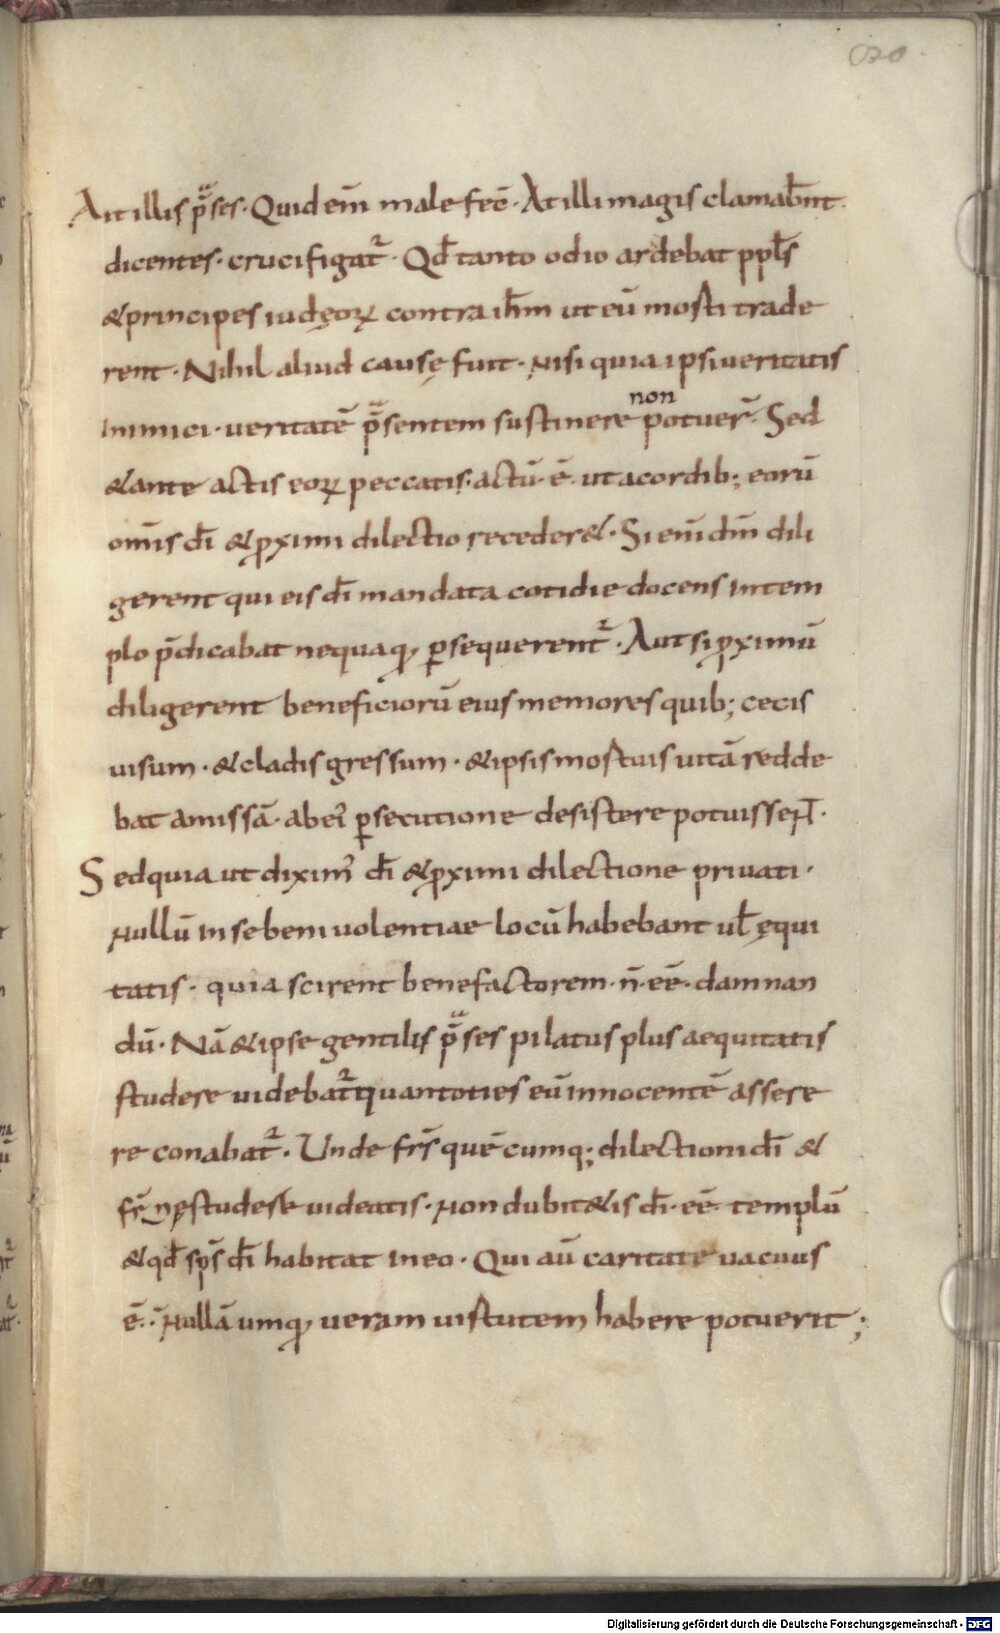 Ait illis p̄ses. Quid em̄ male fec̄. At illi magis clamaƀnt.
dicentes. crucifigat᷑. Qđ tanto odio ardebat ppłs
& principes iudęoꝝ contra ih̄m ut eū morti trade
rent. Nihil aliud causę fuit. nisi quia ipsi ueritatis
inimici. ueritatē p̄sentem sustinere non potuer̄. Sed
& ante actis eoꝝ peccatis. actū. ē. ut a cordib; eorū
om̄is dī & ꝓximi dilectio receder&. Si eni dm̄ dili
gerent qui eis dī mandata cotidie docens in tem
plo p̄dicabat nequaꝗ ꝑsequerent᷑. Aut si ꝓximū
diligerent beneficiorū eius memores quib; cecis
uisum. & cladis gressum. & ipsis mortuis uitā redde
bat amissā. ab ei ꝑsecutione desistere potuissent.
Sed quia ut diximꝰ dī & ꝓximi dilectione priuati.
nullū in se beniuolentiae locū habebant uł ęqui
tatis. quia scirent benefactorem. n̄. eē. damnan
dū. Nā & ipse gentilis p̄ses pilatus plus aequitatis
studere uidebat᷑ qui an toties eū innocentē assere
re conabat᷑. Unde frs̄ quēcumq; dilectioni dī &
studere uideatis. non dubit&is dī. eē. templū
& qđ sps̄ dī habitat in eo. Qui aū caritate uacuus
ē. nullā umꝗ ueram uirtutem habere potuerit;
Digitalisierung gefördert durch die Deutsche Forschungsgemeinschaft - DFG